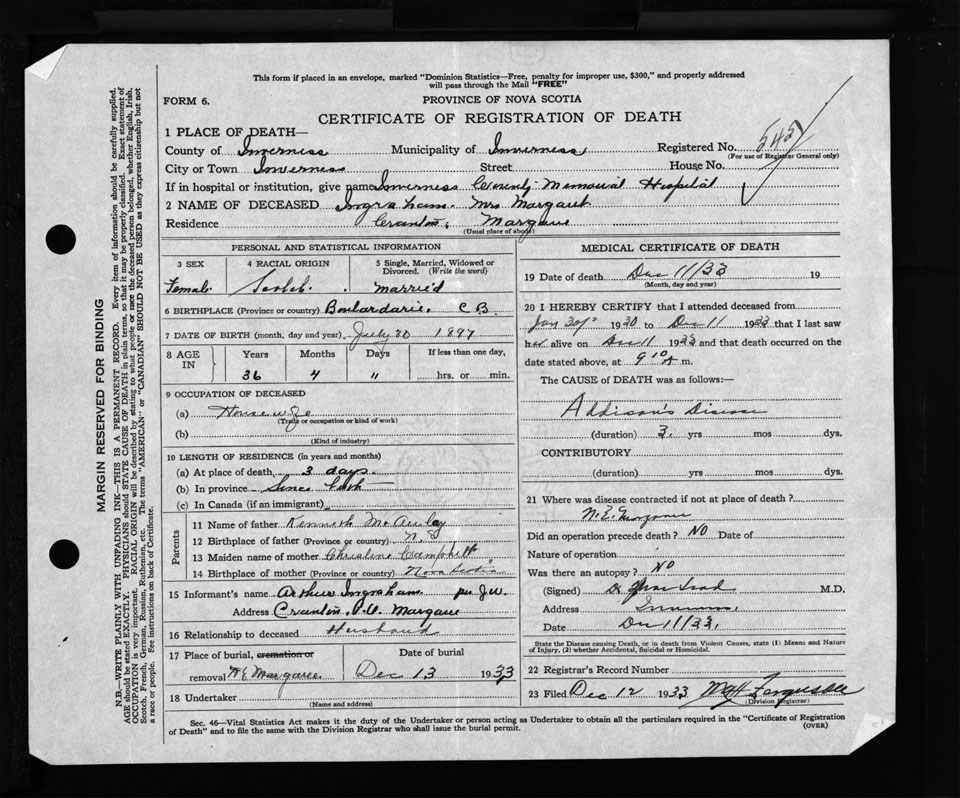 This form if placed in an envelope, marked "Dominion Statistics—Free, penalty for improper use, $300," and properly addressed
will pass through the Mail "FREE"
FORM 6.
PROVINCE OF NOVA SCOTIA
CERTIFICATE OF REGISTRATION OF DEATH
1 PLACE OF DEATH—
County of Inverness Municipality of Inverness Registered No. 545
(For use of Registrar General only)
City or Town Inverness Street House No.
If in hospital or institution, give name Inverness County Memorial Hospital
2 NAME OF DECEASED Ingraham Mrs Margaret
Residence Cranton, Margaree
(Usual place of abode)
PERSONAL AND STATISTICAL INFORMATION
3 SEX 4 RACIAL ORIGIN 5 Single, Married, Widowed or
Divorced. (Write the word)
Female Scotch. married
6 BIRTHPLACE (Province or country) Boulardarie, C B.
7 DATE OF BIRTH (month, day and year) July 30 1897
8 AGE IN Years Months Days If less than one day,
36 4 11 hrs. or min.
9 OCCUPATION OF DECEASED
(a) Housewife
(Trade or occupation or kind of work)
(b)
(Kind of industry)
10 LENGTH OF RESIDENCE (in years and months)
(a) At place of death 3 days.
(b) In province Since birth
(c) In Canada (if an immigrant)
Parents
11 Name of father Kenneth McAuley
12 Birthplace of father (Province or country) N.S
13 Maiden name of mother Christine Campbell
14 Birthplace of mother (Province or country) Nova Scotia
15 Informant's name Arthur Ingraham per J.W.
Address Cranton P.O. Margaree
16 Relationship to deceased Husband
17 Place of burial, cremation or Date of burial
removal N E Margaree Dec 13 1933
18 Undertaker
(Name and address)
MEDICAL CERTIFICATE OF DEATH
19 Date of death Dec 11/33 19
(Month, day and year)
20 I HEREBY CERTIFY that I attended deceased from
Jan 30 1930 to Dec 11 1933 that I last saw
her alive on Dec 11 1933 and that death occurred on the
date stated above, at 9 10 A m.
The CAUSE of DEATH was as follows:—
Addison's Disease
(duration) 3 yrs mos dys.
CONTRIBUTORY
(duration) yrs mos dys.
21 Where was disease contracted if not at place of death?
N.E. Margaree
Did an operation precede death? NO Date of
Nature of operation
Was there an autopsy? NO
(Signed) Dr M.D.
Address
Date Dec 11/33.
State the Disease causing Death, or in death from Violent Causes, state (1) Means and Nature
of Injury, (2) whether Accidental, Suicidal or Homicidal.
22 Registrar's Record Number
23 Filed Dec 12 1933
(Division Registrar)
Sec. 46—Vital Statistics Act makes it the duty of the Undertaker or person acting as Undertaker to obtain all the particulars required in the "Certificate of Registration
of Death" and to file the same with the Division Registrar who shall issue the burial permit. (OVER)
MARGIN RESERVED FOR BINDING
N.B.—WRITE PLAINLY WITH UNFADING INK—THIS IS A PERMANENT RECORD. Every item of information should be carefully supplied.
AGE should be stated EXACTLY. PHYSICIANS should STATE CAUSE OF DEATH in plain terms, so that it may be properly classified. Exact statement of
OCCUPATION is very important. RACIAL ORIGIN will be described by stating to what people or race the deceased person belonged, whether English, Irish,
Scotch, French, German, Russian, Ruthenian, etc. The terms "AMERICAN" or "CANADIAN" SHOULD NOT BE USED as they express citizenship but not
a race or people. See instructions on back of Certificate.